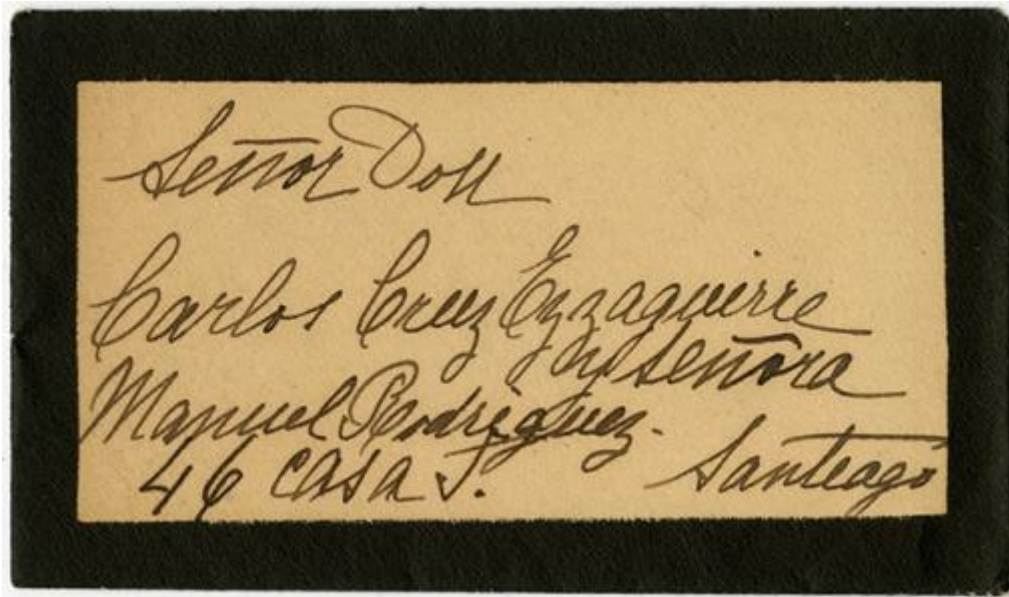 Señor Don
Carlos Cruz Eyzaguirre
y señora
Manuel Rodriguez.
46 casa J. Santiago